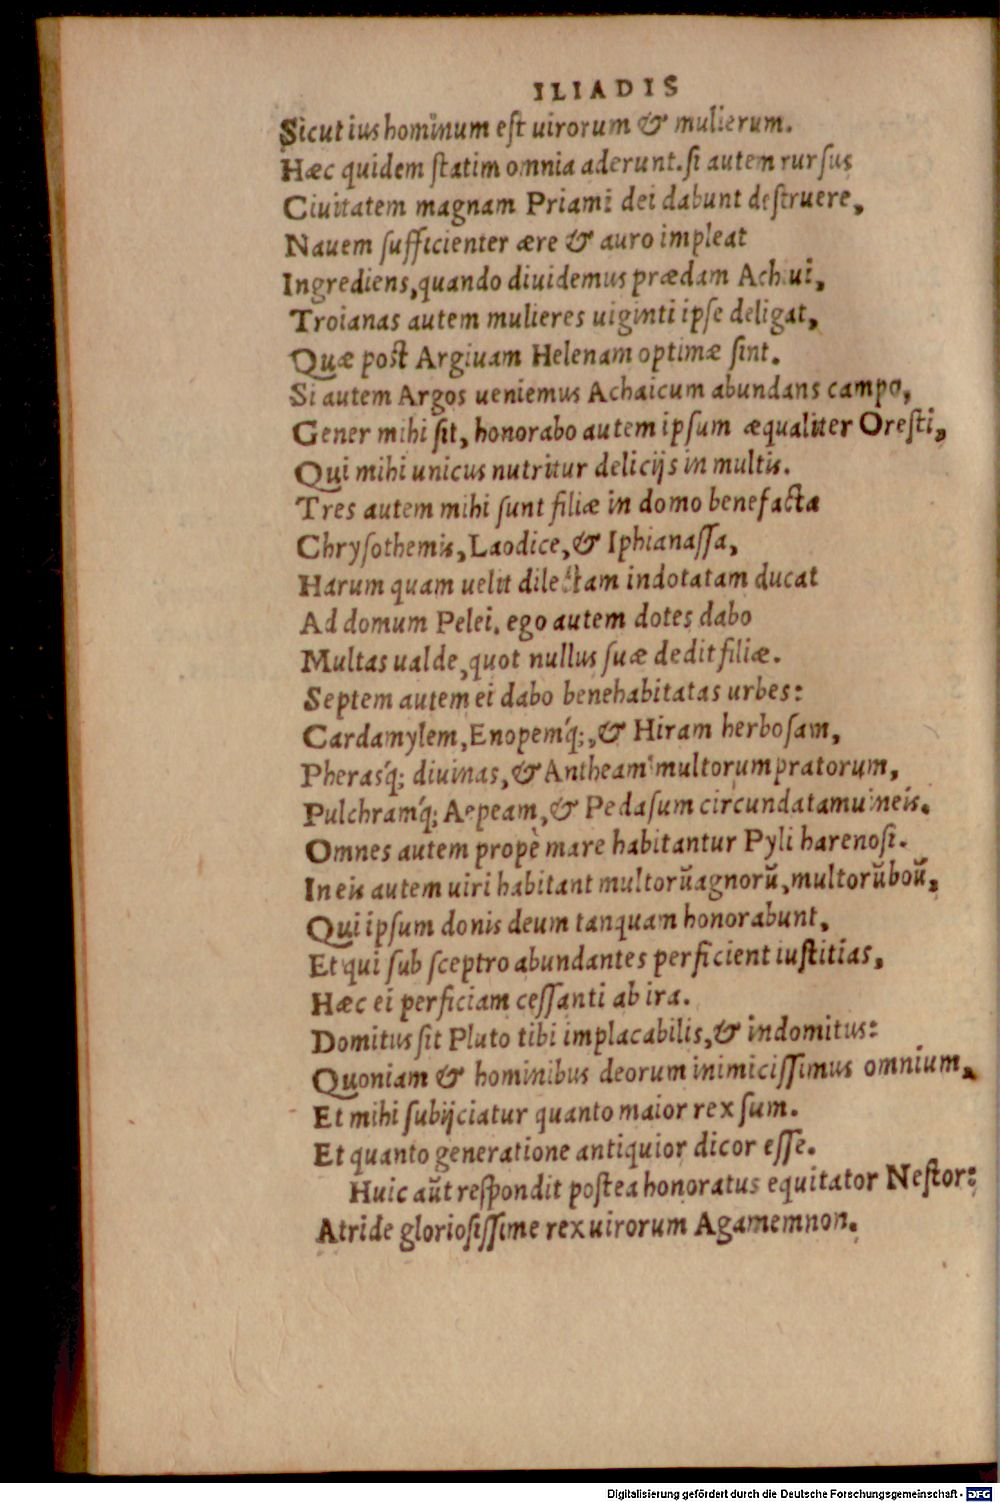 ILIADIS
Sicut ius hominum est uirorum & mulierum.
Hæc quidem statim omnia aderunt. si autem rursus
Ciuitatem magnam Priami dei dabunt destruere,
Nauem sufficienter ære & auro impleat
Ingrediens, quando diuidemus prædam Achiui,
Troianas autem mulieres uiginti ipse deligat,
Quæ post Argiuam Helenam optimæ sint.
Si autem Argos ueniemus Achaicum abundans campo,
Gener mihi sit, honorabo autem ipsum æqualiter Oresti,
Qui mihi unicus nutritur delicijs in multis.
Tres autem mihi sunt filiæ in domo benefacta
Chrysothemis, Laodice, & Iphianassa,
Harum quam uelit dilectam indotatam ducat
Ad domum Pelei. ego autem dotes dabo
Multas ualde, quot nullus suæ dedit filiæ.
Septem autem ei dabo benehabitatas urbes:
Cardamylem, Enopemq́;, & Hiram herbosam,
Pherasq́; diuinas, & Antheam multorum pratorum,
Pulchramq́; Aepeam, & Pedasum circundatam uineis.
Omnes autem propè mare habitantur Pyli harenosi.
In eis autem uiri habitant multorũ agnorũ, multorũ boũ,
Qui ipsum donis deum tanquam honorabunt,
Et qui sub sceptro abundantes perficient iustitias,
Hæc ei perficiam cessanti ab ira.
Domitus sit Pluto tibi implacabilis, & indomitus:
Quoniam & hominibus deorum inimicissimus omnium,
Et mihi subijciatur quanto maior rex sum.
Et quanto generatione antiquior dicor esse.
Huic aũt respondit postea honoratus equitator Nestor:
Atride gloriosissime rex uirorum Agamemnon.
Digitalisierung gefördert durch die Deutsche Forschungsgemeinschaft - DFG